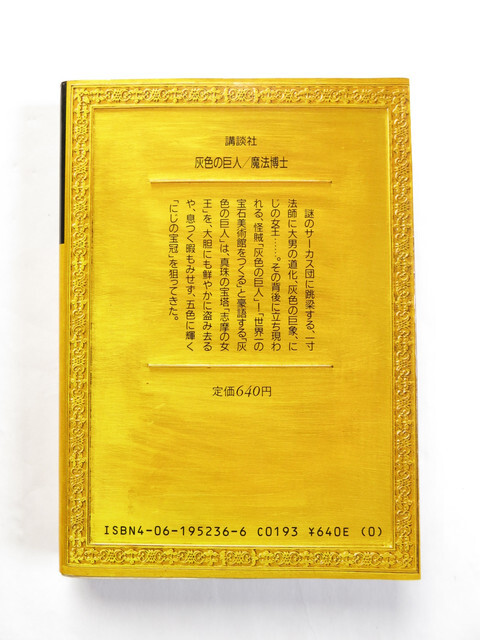 講談社
灰色の巨人/魔法博士
謎のサーカス団に跳梁する、一寸
法師に大男の道化、灰色の巨象、に
じの女王……。その背後に立ち現わ
れる、怪賊「灰色の巨人」―「世界一の
宝石美術館をつくる」と豪語する「灰
色の巨人」は、真珠の宝塔「志摩の女
王」を、大胆にも鮮やかに盗み去る
や、息つく暇もみせず、五色に輝く
「にじの宝冠」を狙ってきた。
定価640円
ISBN4-06-195236-6 C0193 ¥640E (0)